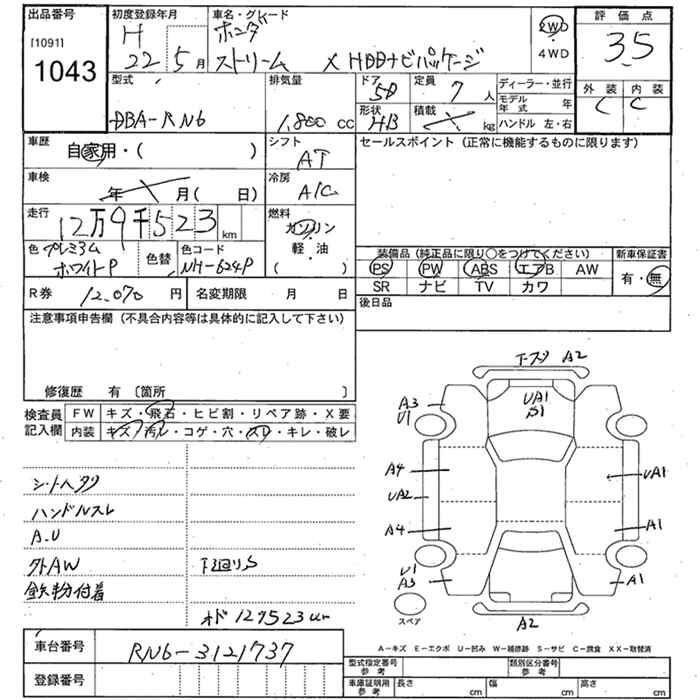 出品番号
[1091]
1043
初度登録年月
H
22 5月
車名・グレード
ホンダ
ストリーム X HDDナビパッケージ
2WD
4WD
評価点
3.5
外装 内装
C C
型式
DBA-RN6
排気量
1,800 cc
ドア
5D
形状
HB
定員
7人
積載
kg
ディーラー・並行
モデル年式 年
ハンドル 左・右
車歴
自家用・( )
シフト
AT
セールスポイント(正常に機能するものに限ります)
車検
年 月( 日)
冷房
A/C
走行
12万9千523km
燃料
ガソリン
軽・油
( )
色 プレミアム
ホワイトP
色替
色コード
NH-624P
装備品(純正品に限り○をつけてください)
新車保証書
PS PW ABS エアB AW
有・無
SR ナビ TV カワ
R券 12,070円
名変期限 月 日
後日品
注意事項申告欄(不具合内容等は具体的に記入して下さい)
修復歴 有 〔箇所 〕
検査員
記入欄
FW キズ・飛石・ヒビ割・リペア跡・X要
内装 キズ・汚レ・コゲ・穴・スレ・キレ・破レ
シートヘタリ
ハンドルスレ
A.U
外AW
下廻りS
鉄粉付着
オド129523km
車台番号 RN6-3121737
登録番号
A2
A3
U1
UA1
S1
A4
UA2
UA1
A4
A1
U1
A3
A1
スペア
A2
A-キズ E-エクボ U-凹み W-補修跡 S-サビ C-腐食 XX-取替済
型式指定番号
参考
類別区分番号
参考
車庫証明用
参考
長さ cm
幅 cm
高さ cm